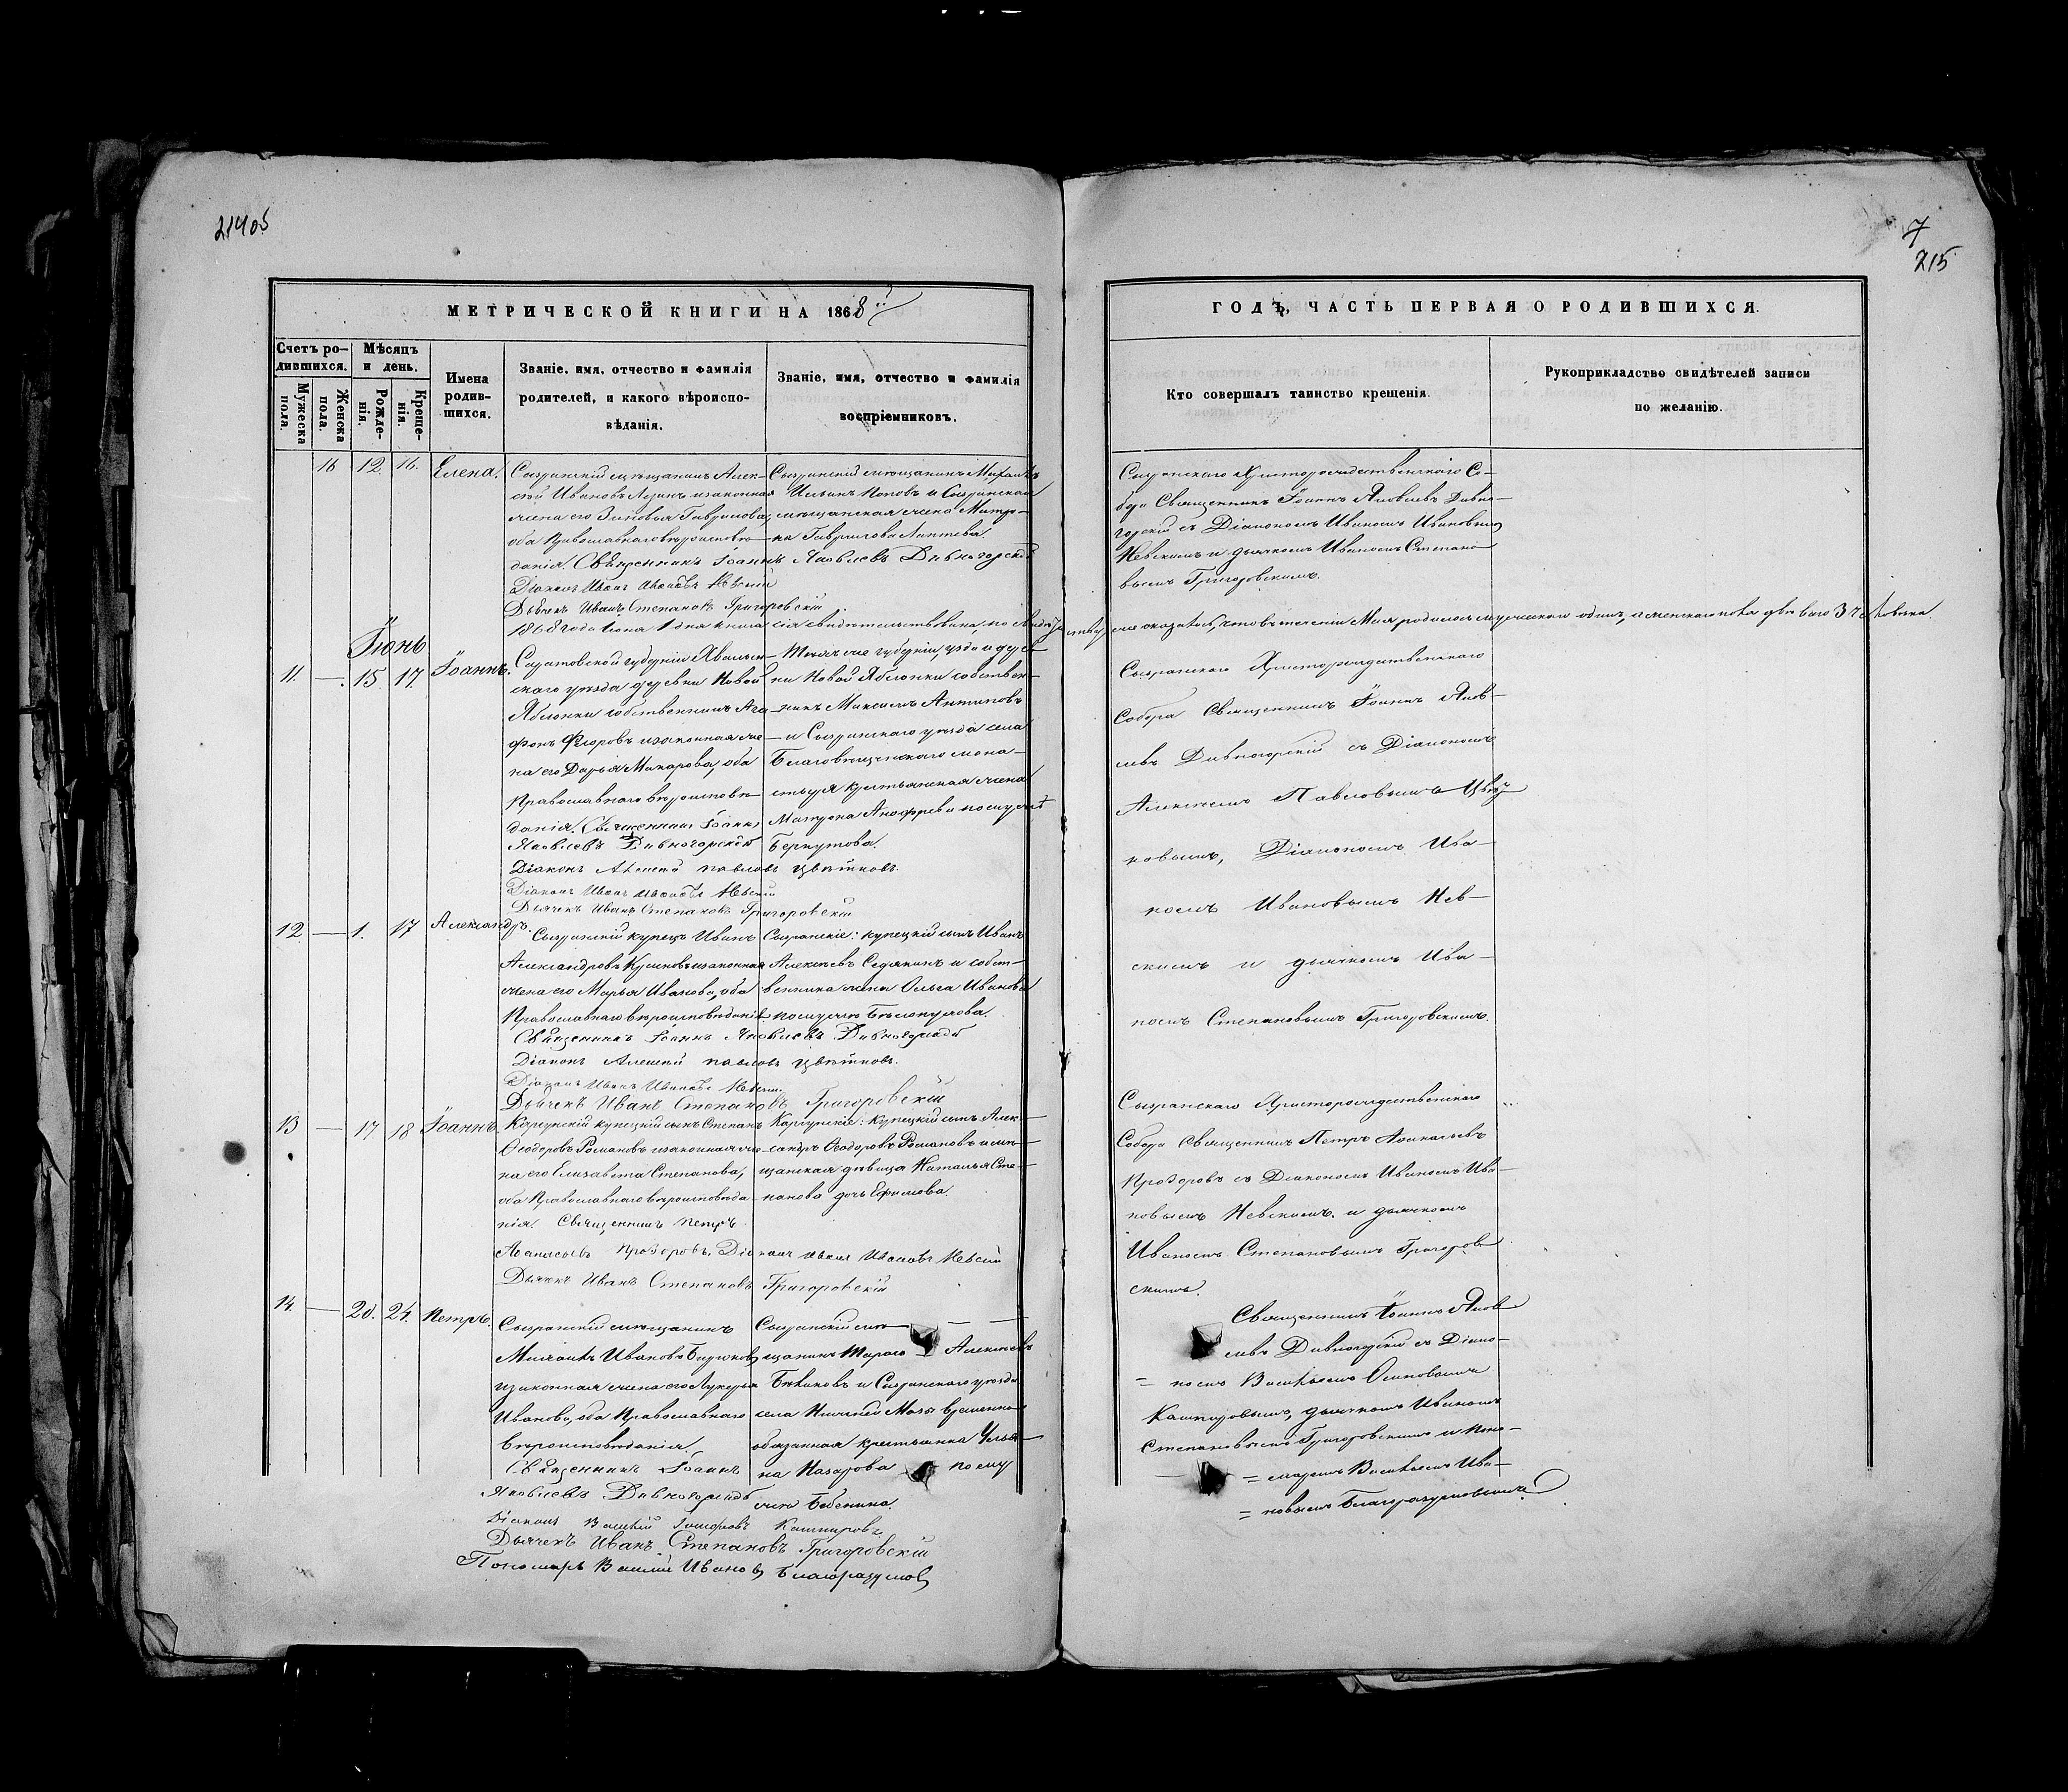 214об
7
215
МЕТРИЧЕСКОЙ КНИГИ НА 1868й
ГОДЪ, ЧАСТЬ ПЕРВАЯ О РОДИВШИХСЯ.
Счетъ ро-
дившихся.
Мужеска
пола.
Женска
пола.
Мѣсяцъ
и день.
Рожде-
нія.
Креще-
нія.
Имена
родив-
шихся.
Званіе, имя, отчество и фамилія
родителей, и какого вѣроиспо-
вѣданія.
Званіе, имя, отчество и фамилія
воспріемниковъ.
Кто совершалъ таинство крещенія.
Рукоприкладство свидѣтелей записи
по желанію.
16 12. 16. Елена.
Сызранскій мѣщанинъ Алек-
сѣй Ивановъ и законная
жена его Зиновья Гаврилова,
оба Православнаго вѣроисповѣ-
данія. Священникъ Іоаннъ Яковлевъ Дивногорскій
Діаконъ Иванъ Ивановъ Невскій
Дьячекъ Иванъ Степановъ Григоровскій
Сызранскій мѣщанинъ Михаилъ
Ильинъ Поповъ и Сызранская
мѣщанская жена Матре-
на Гаврилова Лаптева.
Сызранскаго Христорождественскаго Со-
бора Священникъ Іоаннъ Яковлевъ Дивно-
горскій съ Діакономъ Иваномъ Ивановымъ
Невскимъ и дьячкомъ Иваномъ Степано-
вымъ Григоровскимъ.
1868 года Іюня 1 дня книга сія свидѣтельствована, по свидѣтельству же оказалось, что въ теченіи Мая родилось мужескаго одинъ, а женскаго пола двѣ всего 3 человѣка.
Іюнь
11. — 15. 17. Іоаннъ.
Саратовской губерніи Хвалын-
скаго уѣзда деревни Новой
Яблонки собственникъ Ага-
фонъ Ѳедоровъ и законная же-
на его Дарья Макарова, оба
Православнаго вѣроисповѣ-
данія. Священникъ Іоаннъ
Яковлевъ Дивногорскій
Діаконъ Алексѣй Павловъ Цвѣтковъ.
Діаконъ Иванъ Ивановъ Невскій
Дьячекъ Иванъ Степановъ Григоровскій
Той же губерніи, уѣзда и дерев-
ни Новой Яблонки собствен-
никъ Максимъ Антиповъ
и Сызранскаго уѣзда села
Благовѣщенскаго мона-
стыря крестьянская жена
Матрена Анофрева по мужѣ
Беркутова.
Сызранскаго Христорождественскаго
Собора Священникъ Іоаннъ Яков-
левъ Дивногорскій съ Діакономъ
Алексѣемъ Павловымъ Цвѣт-
ковымъ, Діакономъ Ива-
номъ Ивановымъ Нев-
скимъ и дьячкомъ Ива-
номъ Степановымъ Григоровскимъ.
12 — 1. 17 Александръ.
Сызранскій купецъ Иванъ
Александровъ и законная
жена его Марья Иванова, оба
Православнаго вѣроисповѣданія.
Священникъ Іоаннъ Яковлевъ Дивногорскій
Діаконъ Алексѣй Павловъ Цвѣтковъ.
Діаконъ Иванъ Ивановъ Невскій
Дьячекъ Иванъ Степановъ Григоровскій
Сызранскіе: купецкій сынъ Иванъ
Алексѣевъ Седякинъ и собст-
венника жена Ольга Иванова
по мужѣ
13 — 17 18 Іоаннъ.
Карсунскій купецкій сынъ Степанъ
Ѳеодоровъ Романовъ и законная же-
на его Елизавета Степанова,
оба Православнаго вѣроисповѣда-
нія. Священникъ Петръ
Аѳанасьевъ Прозоровъ. Діаконъ Иванъ Ивановъ Невскій
Дьячекъ Иванъ Степановъ Григоровскій
Карсунскіе: купецкій сынъ Алек-
сандръ Ѳеодоровъ Романовъ и мѣ-
щанская дѣвица Наталья Сте-
панова дочь Ефимова.
Сызранскаго Христорождественскаго
Собора Священникъ Петръ Аѳанасьевъ
Прозоровъ съ Діакономъ Иваномъ Ива-
новымъ Невскимъ и дьячкомъ
Иваномъ Степановымъ Григоров-
скимъ.
14. — 20. 24. Петръ.
Сызранскій мѣщанинъ
Михаилъ Ивановъ Бирюковъ
и законная жена его Лукерья
Иванова, оба Православнаго
вѣроисповѣданія.
Священникъ Іоаннъ
Яковлевъ Дивногорскій
Діаконъ Василій Іосифовъ Кашкировъ
Дьячекъ Иванъ Степановъ Григоровскій
Пономарь Василій Ивановъ Благоразумовъ
Сызранскій мѣ-
щанинъ Тарасъ Алексѣевъ
и Сызранскаго уѣзда
села Нижней Мазы временно
обязанная крестьянка Улья-
на Назарова по му-
жѣ Бабенина.
Священникъ Іоаннъ Яков-
левъ Дивногорскій съ Діако-
номъ Васильемъ Осиповымъ
Кашкировымъ, дьячкомъ Иваномъ
Степановымъ Григоровскимъ и поно-
маремъ Васильемъ Ива-
новымъ Благоразумовымъ.